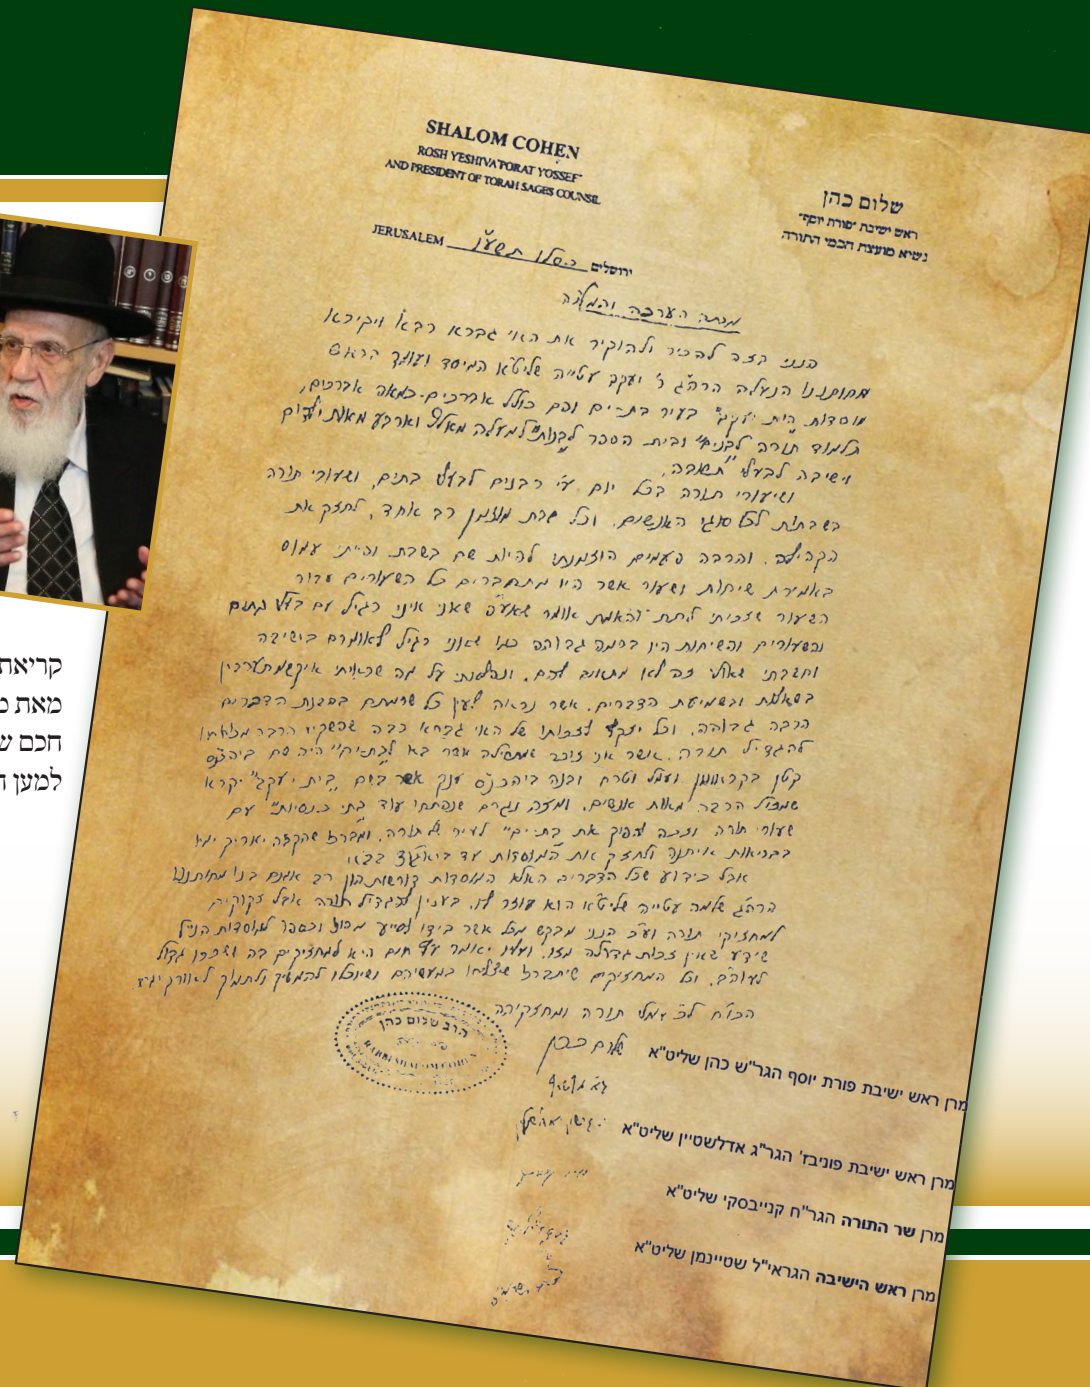 SHALOM COHEN
ROSH YESHIVA"PORAT YOSSEF"
AND PRESIDENT OF TORAH SAGES COUNSIL
שלום כהן
ראש ישיבת "פורת יוסף"
נשיא מועצת חכמי התורה
JERUSALEM כסלו תשע"ו ירושלים
מכתב הערכה והמלצה
הנני בזה להכיר ולהוקיר את האי גברא רבא ויקירא
מחותננו הנעלה הרה"ג ר' יעקב עטייה שליט"א המיסד ועומד בראש
מוסדות "בית יעקב" בעיר בת-ים והם כולל אברכים-כמאה אברכים,
תלמוד תורה לבנים ובית הספר לבנות למעלה מאלף וארבע מאות ילדים
וישיבה לבעלי תשובה.
ושיעורי תורה בכל יום ע"י רבנים לבעלי בתים, ושעורי תורה
בשבתות לכל סוגי האנשים. וכל שבת מוזמן רב אחד, לחזק את
הקהילה. והרבה פעמים הוזמנתי להיות שם בשבת והייתי עמוס
באמירת שיחות ושעור אשר היו מתחברים כל השעורים עבור
השיעור שזכיתי לתת והאמת אומר שאע"פ שאני אינני רגיל עם בעלי בתים
והשעורים והשיחות היו ברמה גבוהה כמו שאני רגיל לאומרם בישיבה
וחשבתי שאולי זה לא מתאים להם. ונפלאתי על מה שראיתי איך שמתערבין
בשאלות ובשמיעת הדברים. אשר נראה לעין כל שרמתם בהבנת הדברים
הרבה גבוהה. וכל יזקף לזכותו של האי גברא רבה שהשקיע הרבה מכוחותיו
להגדיל תורה. אשר אני זוכר שמתחילה אשר בא לבת-ים היה שם ביהכ"נ
קטן ועמל וטרח ובנה ביהכ"נ ענק אשר בשם "בית יעקב" יקרא
שמכיל הרבה מאות אנשים. ומזה נגרם שנפתחו עוד בתי כנסיות עם
שעורי תורה וזכה להפוך את בת-ים לעיר של תורה. ומברכו שהקב"ה יאריך ימיו
בבריאות איתנה ולחזק את המוסדות עד ביאת גוא"צ בב"א
אבל כידוע שכל הדברים האלה המוסדות דורשות הון רב אמנם בנו מחותננו
הרה"ג שלמה עטייה שליט"א הוא עוזר לו. בענין להגדיל תורה אבל זקוקים
למחזיקי תורה וע"כ הנני מבקש מכל אשר בידו לסייע מכוחו וכספו למוסדות הנ"ל
שידע שאין זכות גדולה מזו. ועליו יאומר עץ חיים היא למחזיקים בה ושכרו גדול
לעוה"ב. וכל המחזיקים שיתברכו שיצליחו במעשיהם ושיוכלו להמשיך ולתמוך לאורך ימים
הכו"ח לכ' עמלי תורה ומחזקיה
שלום כהן
הרב שלום כהן
RABBI SHALOM COHEN
מרן ראש ישיבת פורת יוסף הגר"ש כהן שליט"א
מרן ראש ישיבת פוניבז' הגר"ג אדלשטיין שליט"א
מרן שר התורה הגר"ח קנייבסקי שליט"א
מרן ראש הישיבה הגראי"ל שטיינמן שליט"א
קריאת
מאת
חכם
למען